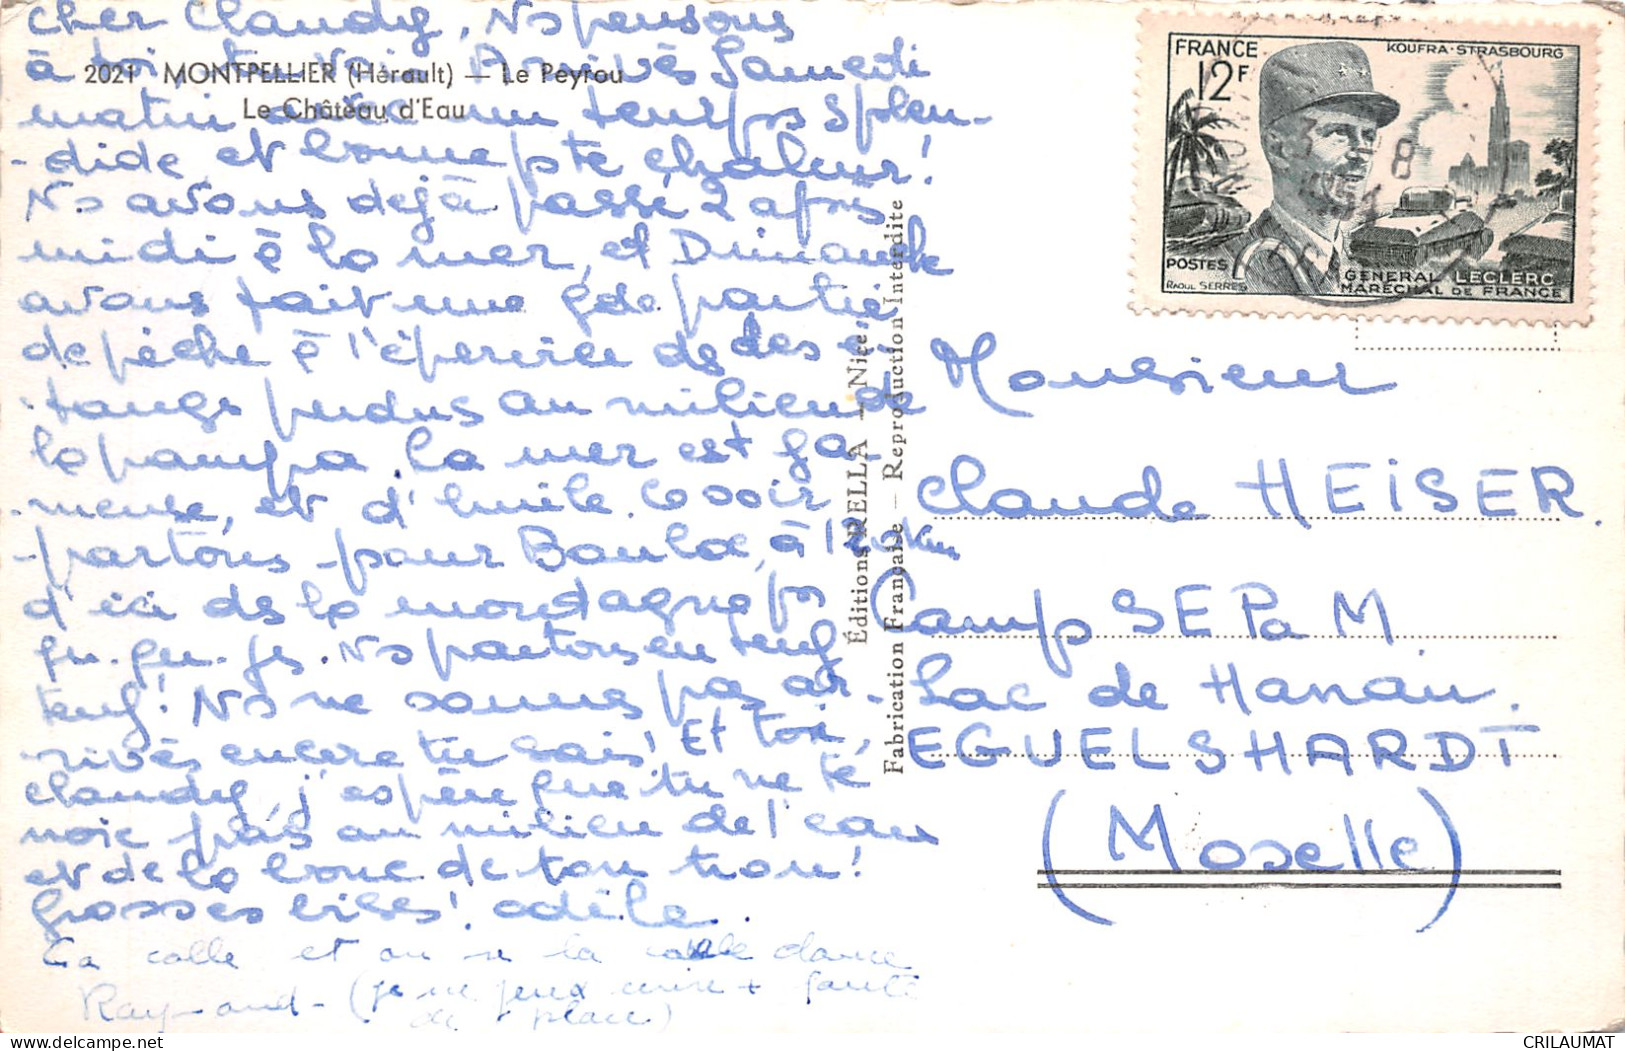 Cher Claudy, Ns pensons
à toi Arrivés Samedi
2021 MONTPELLIER (Hérault) — Le Peyrou
Le Château d'Eau
matin avec un temps splen-
-dide, et bonne pte chaleur!
Ns avons dejà passé 2 après
midi à la mer, et Dimanche
avons fait une gde partie
de pêche à l'épervier de des é-
-tangs perdus au milieu de
la pampa. La mer est fa-
-meuse, et d'huile. Ce soir
partons pour Boulou, à
d'ici de la montagne
Ns partons en teuf
teuf! Ns ne sommes pas ar-
-rivés encore tu sais! Et toi,
Claudy, j'espère que tu ne te
noie pas au milieu de l'eau
et de la boue de ton trou!
Grosses bises! Adèle.
Ca colle et on se la colle douce
Raymond - (je ne peux écrire + faute
de place)
Éditions RELLA — Nice
Fabrication Française — Reproduction Interdite
FRANCE
12F
KOUFRA-STRASBOURG
POSTES
RAOUL SERRES
GENERAL LECLERC
MARECHAL DE FRANCE
Monsieur
Claude HEISER.
Camp SEPaM
Lac de Hanau.
EGUELSHARDT
(Moselle)
CRILAUMAT